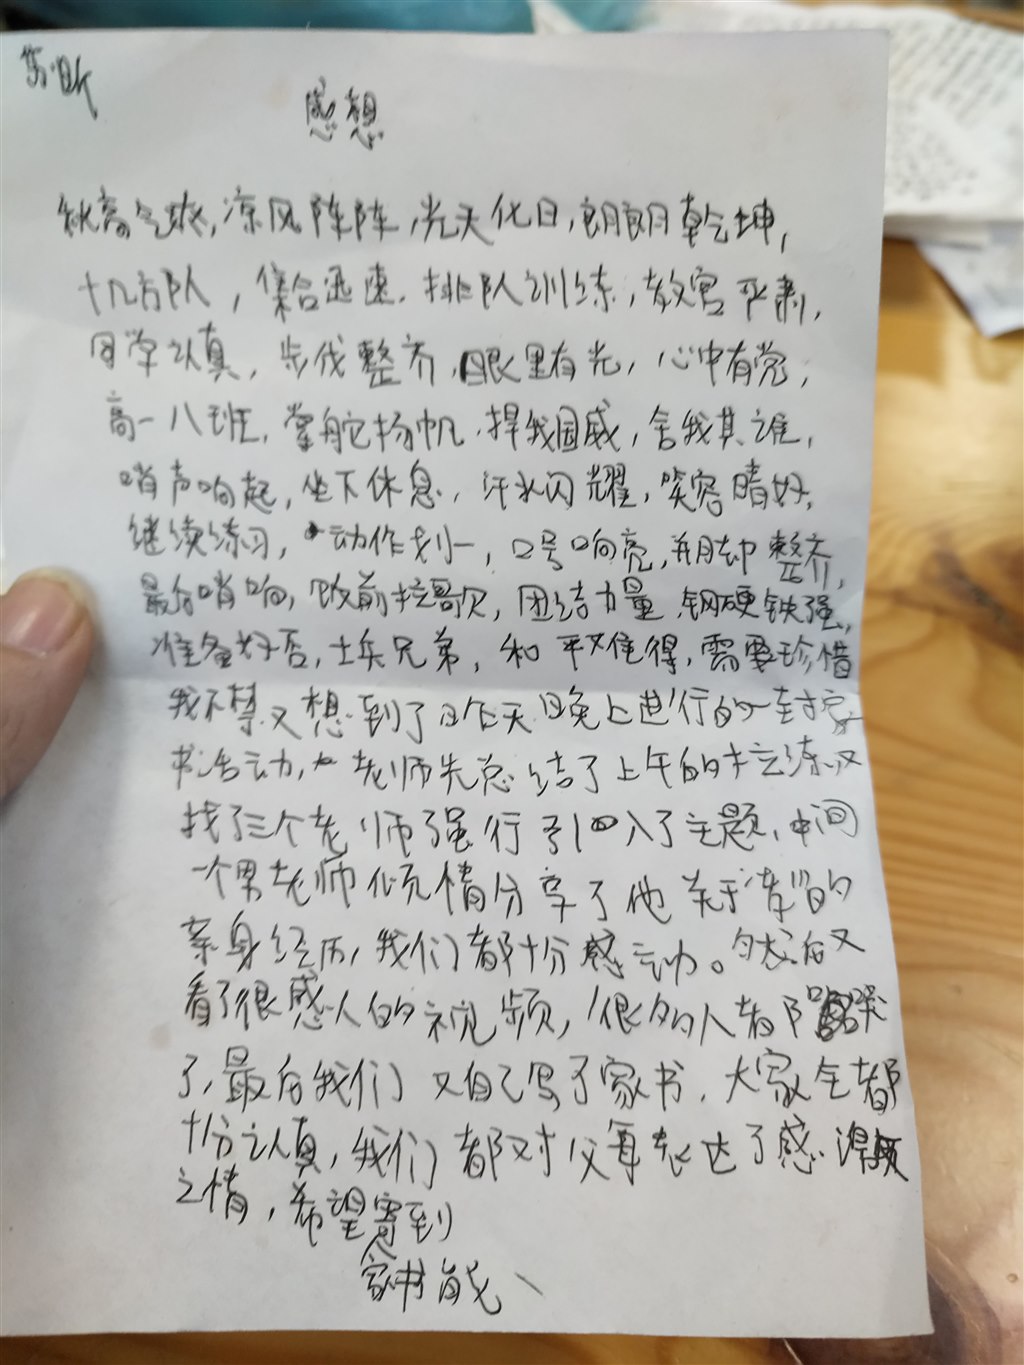 感想
秋高气爽,凉风阵阵,光天化日,朗朗乾坤,
十几方队,集合迅速.排队训练,教官严肃,
同学认真,步伐整齐,眼里有光,心中有党,
高一八班,掌舵扬帆.捍我国威,舍我其谁,
哨声响起,坐下休息,汗水闪耀,笑容晴好,
继续练习,动作划一,口号响亮,整齐,
最后哨响,饭前拉歌,团结力量.钢硬铁强,
准备好否,士兵兄弟,和平难得,需要珍惜
我不禁又想到了昨天晚上进行的一封家
书活动,老师先总结了上午的拉练又
找了三个老师强行引入了主题,中间
一个男老师倾情分享了他关于"孝"的
亲身经历,我们都十分感动。然后又
看了很感人的视频,很多的人都哭
了,最后我们又自己写了家书.大家全都
十分认真,我们都对父母表达了感
之情,希望寄到
家书能、